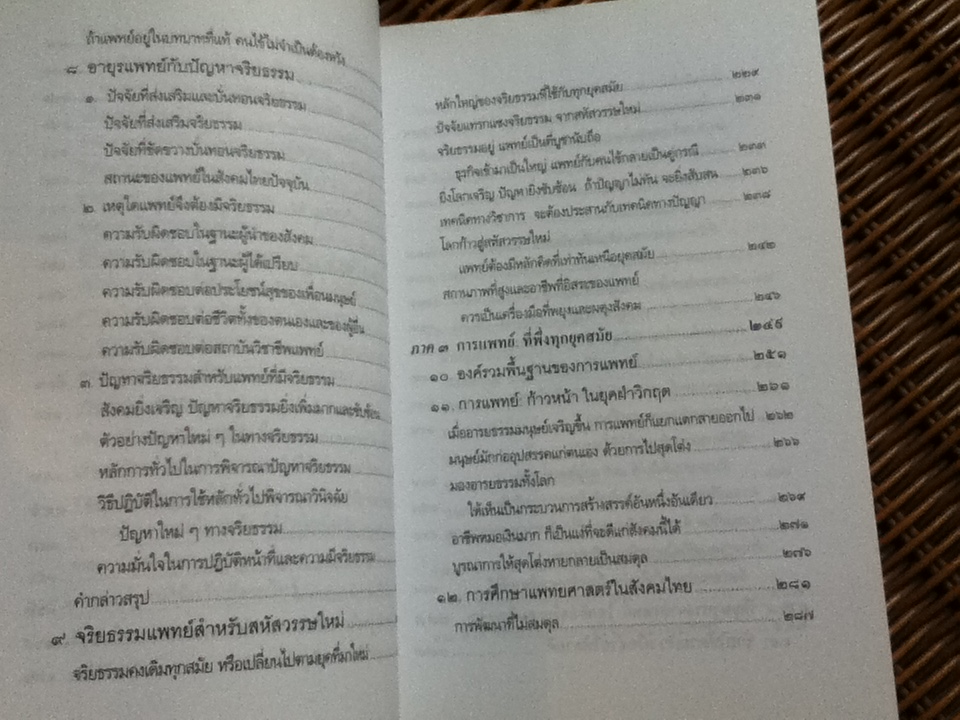 ถ้าแพทย์อยู่ในบทบาทที่แท้ คนไข้ไม่จำเป็นต้องหวัง
๘. อายุรแพทย์กับปัญหาจริยธรรม
๑. ปัจจัยที่ส่งเสริมและบั่นทอนจริยธรรม
ปัจจัยที่ส่งเสริมจริยธรรม
ปัจจัยที่ขัดขวางบั่นทอนจริยธรรม
สถานะของแพทย์ในสังคมไทยปัจจุบัน
๒. เหตุใดแพทย์จึงต้องมีจริยธรรม
ความรับผิดชอบในฐานะผู้นำของสังคม
ความรับผิดชอบในฐานะผู้ได้เปรียบ
ความรับผิดชอบต่อประโยชน์สุขของเพื่อนมนุษย์
ความรับผิดชอบต่อชีวิตทั้งของตนเองและของผู้อื่น
ความรับผิดชอบต่อสถาบันวิชาชีพแพทย์
๓. ปัญหาจริยธรรมสำหรับแพทย์ที่มีจริยธรรม
สังคมยิ่งเจริญ ปัญหาจริยธรรมยิ่งเพิ่มมากและซับซ้อน
ตัวอย่างปัญหาใหม่ ๆ ในทางจริยธรรม
หลักการทั่วไปในการพิจารณาปัญหาจริยธรรม
วิธีปฏิบัติในการใช้หลักทั่วไปพิจารณาวินิจฉัย
ปัญหาใหม่ ๆ ทางจริยธรรม
ความมั่นใจในการปฏิบัติหน้าที่และความมีจริยธรรม
คำกล่าวสรุป
๙. จริยธรรมแพทย์สำหรับสหัสวรรษใหม่
จริยธรรมคงเดิมทุกสมัย หรือเปลี่ยนไปตามยุคที่มาใหม่
หลักใหญ่ของจริยธรรมที่ใช้กับทุกยุคสมัย ๒๒๙
ปัจจัยแทรกแซงจริยธรรม จากสหัสวรรษใหม่ ๒๓๑
จริยธรรมอยู่ แพทย์เป็นที่บูชานับถือ
ธุรกิจเข้ามาเป็นใหญ่ แพทย์กับคนไข้กลายเป็นคู่กรณี ๒๓๓
ยิ่งโลกเจริญ ปัญหายิ่งซับซ้อน ถ้าปัญญาไม่ทัน จะยิ่งสับสน ๒๓๖
เทคนิคทางวิชาการ จะต้องประสานกับเทคนิคทางปัญญา ๒๓๘
โลกก้าวสู่สหัสวรรษใหม่
แพทย์ต้องมีหลักคิดที่เท่าทันเหนือยุคสมัย ๒๔๒
สถานภาพที่สูงและอาชีพที่อิสระของแพทย์
ควรเป็นเครื่องมือที่พยุงและผดุงสังคม ๒๔๖
ภาค ๓ การแพทย์: ที่พึ่งทุกยุคสมัย ๒๔๙
๑๐. องค์รวมพื้นฐานของการแพทย์ ๒๕๑
๑๑. การแพทย์: ก้าวหน้า ในยุคฝ่าวิกฤต ๒๖๑
เมื่ออารยธรรมมนุษย์เจริญขึ้น การแพทย์ก็แยกแตกสายออกไป ๒๖๒
มนุษย์มักก่ออุปสรรคแก่ตนเอง ด้วยการไปสุดโต่ง ๒๖๖
มองอารยธรรมทั้งโลก
ให้เห็นเป็นกระบวนการสร้างสรรค์อันหนึ่งอันเดียว ๒๖๙
อาชีพหมอเงินมาก ก็เป็นแง่ที่จะดีแก่สังคมนี้ได้ ๒๗๑
บูรณาการให้สุดโต่งหายกลายเป็นสมดุล ๒๗๖
๑๒. การศึกษาแพทยศาสตร์ในสังคมไทย ๒๘๑
การพัฒนาที่ไม่สมดุล ๒๘๗